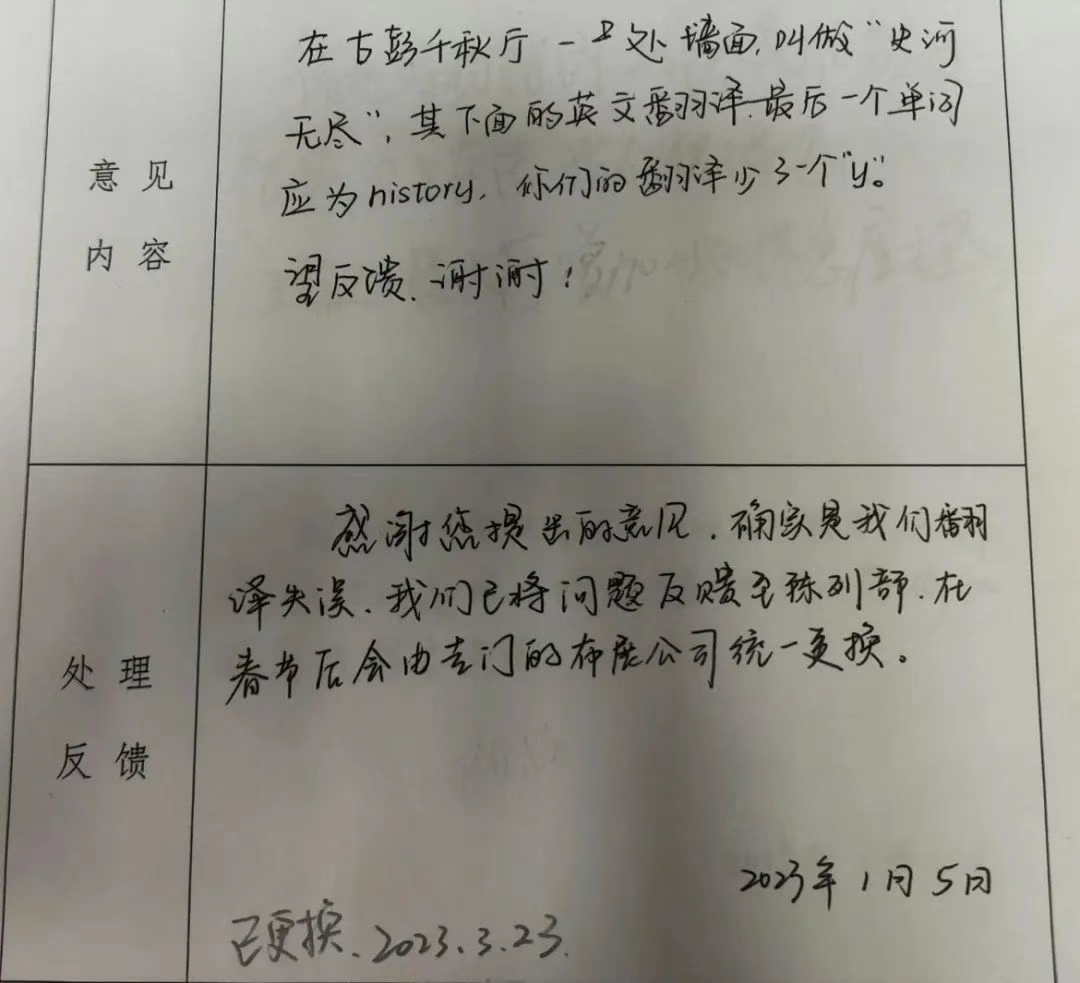 在古彭千秋厅一处墙面,叫做“史河
无尽”,其下面的英文翻译最后一个单词
应为history,你们的翻译少了一个“y”。
望反馈,谢谢!
意见
内容
感谢您提出的意见,确实是我们翻
译失误,我们已将问题反馈至陈列部,在
春节后会由专门的布展公司统一更换。
处理
反馈
2023年1月5日
已更换、2023.3.23.